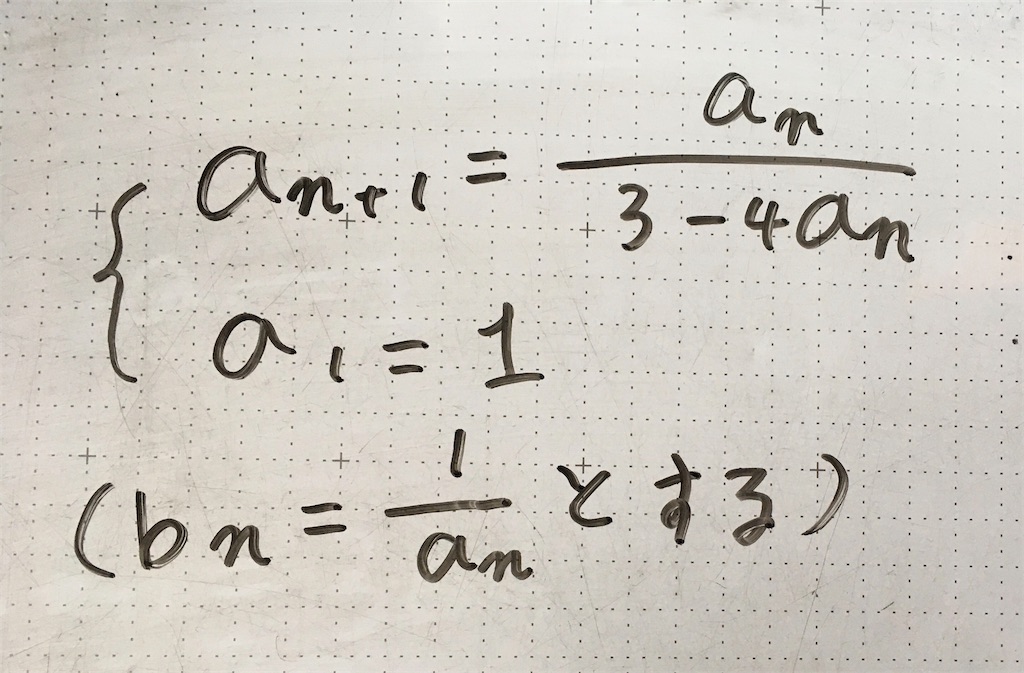 { a_{n+1} = \frac{a_n}{3-4a_n}
a_1 = 1
(b_n = \frac{1}{a_n} とする)